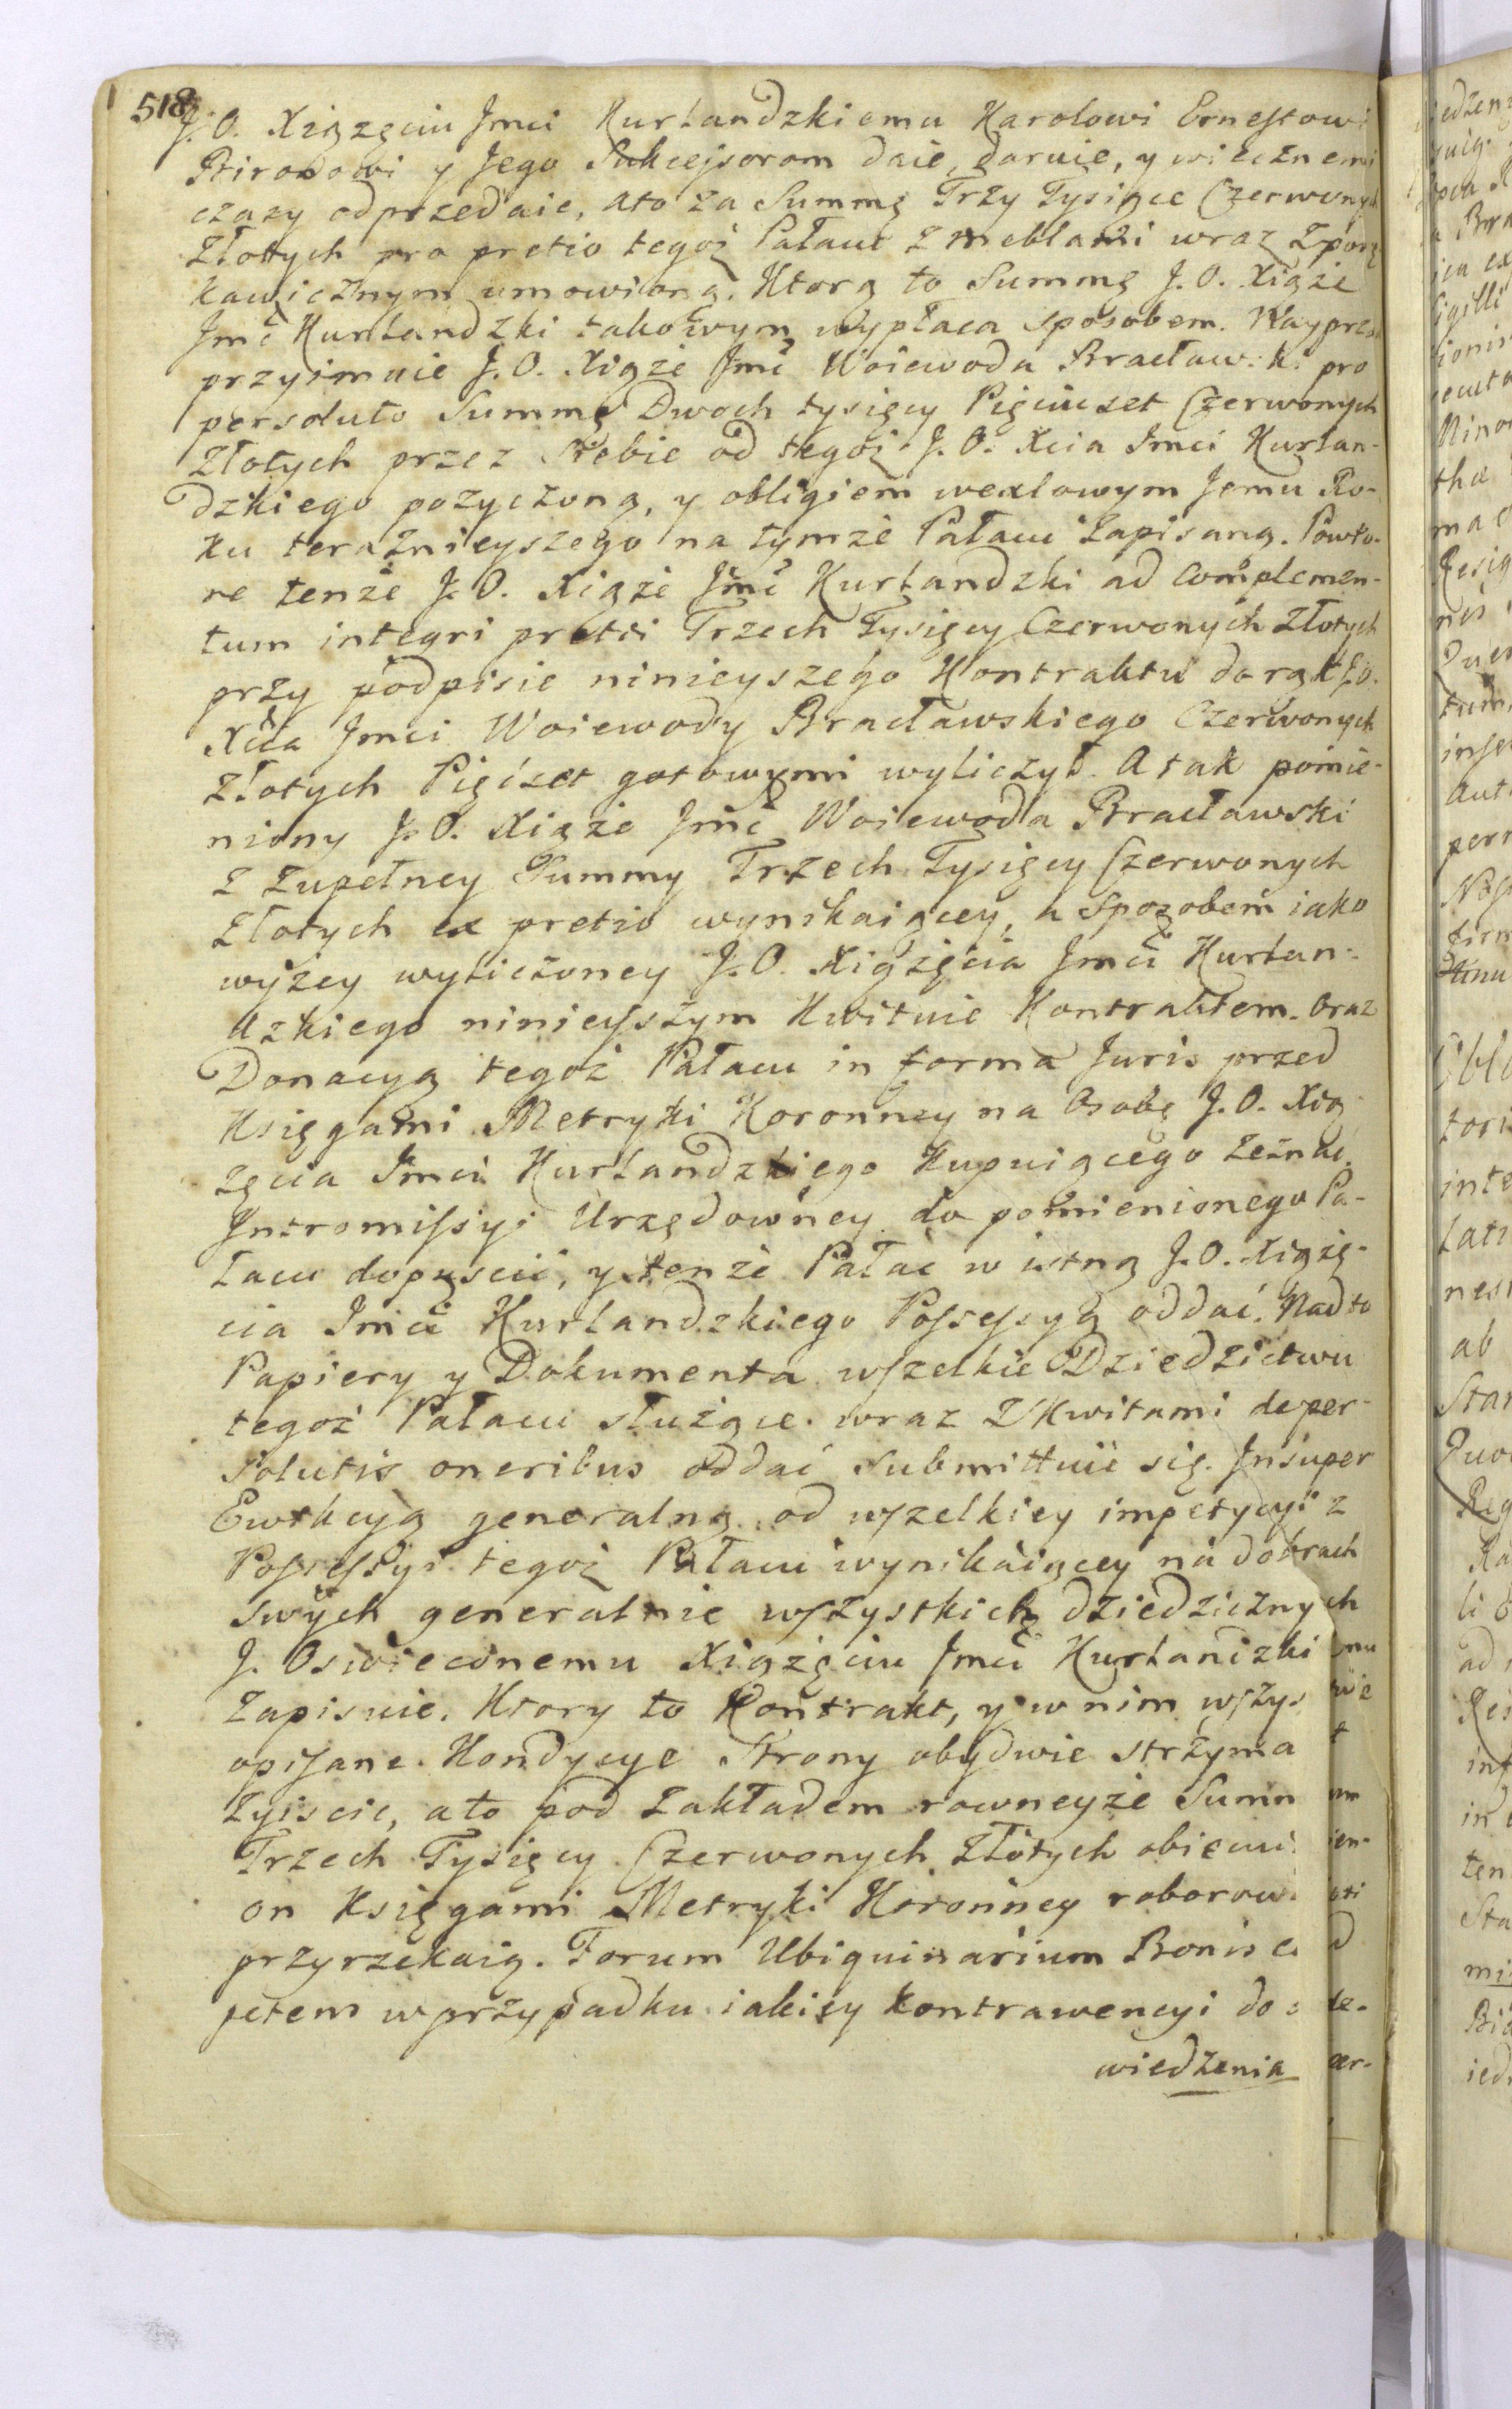 518
J. O. Xiążęciu Jmci Kurlandzkiemu Karolowi Ernestowi
Bironowi y Jego Sukcessorom daie, daruie, y wiecznemi
czasy odprzedaie, ato za Summę Trzy Tysiące Czerwonych
Złotych pro pretio tegoż Pałacu z meblami wraz z porą
kawicznym umowioną. Ktorą to Summę J. O. Xiąże
Jmć Kurlandzki takowym wypłaca sposobem. Nayprzo
przyimuie J. O. Xiąże Jmć Woiewoda Bracław: k: pro
persoluto Summę Dwoch tysięcy Pięciuset Czerwonych
Złotych przez Siebie od tegoż J. O. Xcia Jmci Kurlan-
dzkiego pożyczoną, y obligiem wexlowym Jemu Ro-
ku teraźnieyszego na tymże Pałacu zapisaną. Powto-
re tenże J. O. Xiąże Jmć Kurlandzki ad complemen-
tum integri pretii Trzech Tysięcy Czerwonych Złotych
przy podpisie ninieyszego Kontraktu do rąk J. O.
Xcia Jmci Woiewody Bracławskiego Czerwonych
Złotych Pięćset gotowymi wyliczył. A tak pomie-
niony J. O. Xiąże Jmć Woiewoda Bracławski
z zupełney Summy Trzech Tysięcy Czerwonych
Złotych ex pretio wynikaiącey, a sposobem iako
wyżey wyliczoney J. O. Xiążęcia Jmci Kurlan-
dzkiego ninieyszym Kwituie Kontraktem. Oraz
Donacyą tegoż Pałacu in forma Juris przed
Księgami Metryki Koronney na Osobę J. O. Xią-
żęcia Jmci Kurlandzkiego Kupuiącego zeznać.
Intromissyi Urzędowney do pomienionego Pa-
łacu dopuscić, y tenże Pałac w istną J. O. Xiążę-
cia Jmci Kurlandzkiego Possessyą oddać. Nadto
Papiery y Dokumenta wszelkie Dziedzictwu
tegoż Pałacu służące. wraz z Kwitami de per-
solutis oneribus oddać submittuie się. Insuper
Ewikcyą generalną od wszelkiey impetycyi z
Possessyi tegoż Pałacu wynikaiącey na dobrach
swych generalnie wszystkich dziedzicznych
J. Oswieconemu Xiążęciu Jmci Kurlandzki
zapisuie. Ktory to Kontrakt, y w nim wszys
opisane Kondycye Strony obydwie strzyma
ziyiscic, ato pod zakładem rowneyże Summ
Trzech Tysięcy Czerwonych Złotych obiecui
on Księgami Metryki Koronney roborow
przyrzekaią. Forum Ubiquinarium Bonis
jetem w przypadku iakiey kontrawencyi do
wiedzenia